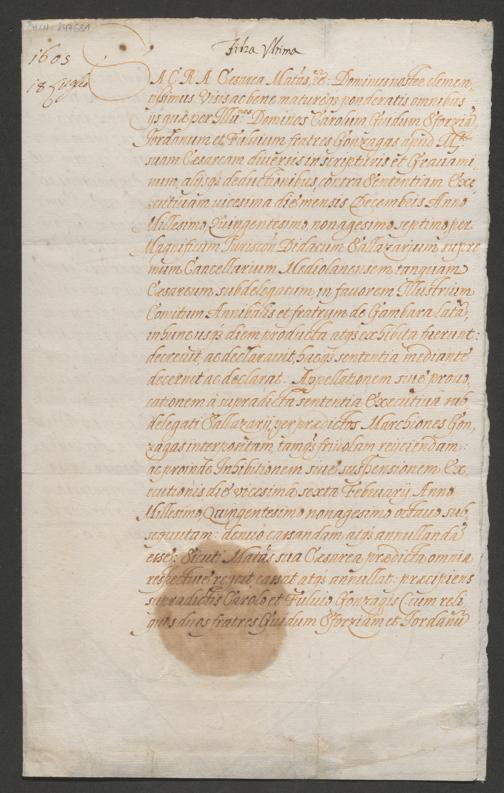 Filza Vltima
1603
18 Luglio
SACRA Cæsarea Matas, &c: Dominus noster clemen
tissimus. Visis ac bene maturéq; ponderatis omnibus
ijs quæ per Illu.res Dominos Carolum Guidum Sforziā
Iordanum et Fuluium fratres Gonzagas apud M.tem
suam Cæsaream diuersis in scripturis et Grauami
num, alijsq; deductionibus, contra Sententiam Exe
cutiuam vicesima die mensis Decembris Anno
Millesimo, Quingentesimo, nonagesimo septimo per
Magnificum Iuriscon: Didacum Sallazarium, supre
mum Cancellarium Mediolanensem, tanquam
Cæsareum, subdelegatum, in fauorem Illustrium
Comitum Annibalis et fratrum de Gambara lata,
in hunc usq; diem producta atq; exhibita fuerunt:
decreuit, ac declarauit, hacq; sententia mediante
decernit ac declarat: Appellationem siue prouo,
cationem à supradicta sententia Executiua sub
delegati Sallazarij per prædictos Marchiones Gon,
zagas interpositam, tamq; friuolam reijciendam:
ac proinde Inhibitionem siue suspensionem Ex,
ecutionis die vicesima sexta Februarij Anno
Millesimo Quingentesimo nonagesimo octauo sub,
sequutam: denuo cassandam, atq; annullandā
esse: Sicuti Matas sua Cæsarea prædicta omnia
respectiue reijcit cassat atq; annullat: præcipiens
supradictis Carolo et Fuluio Gonzagis (cum reli
quos duos fratres Guidum Sforziam et Iordanū